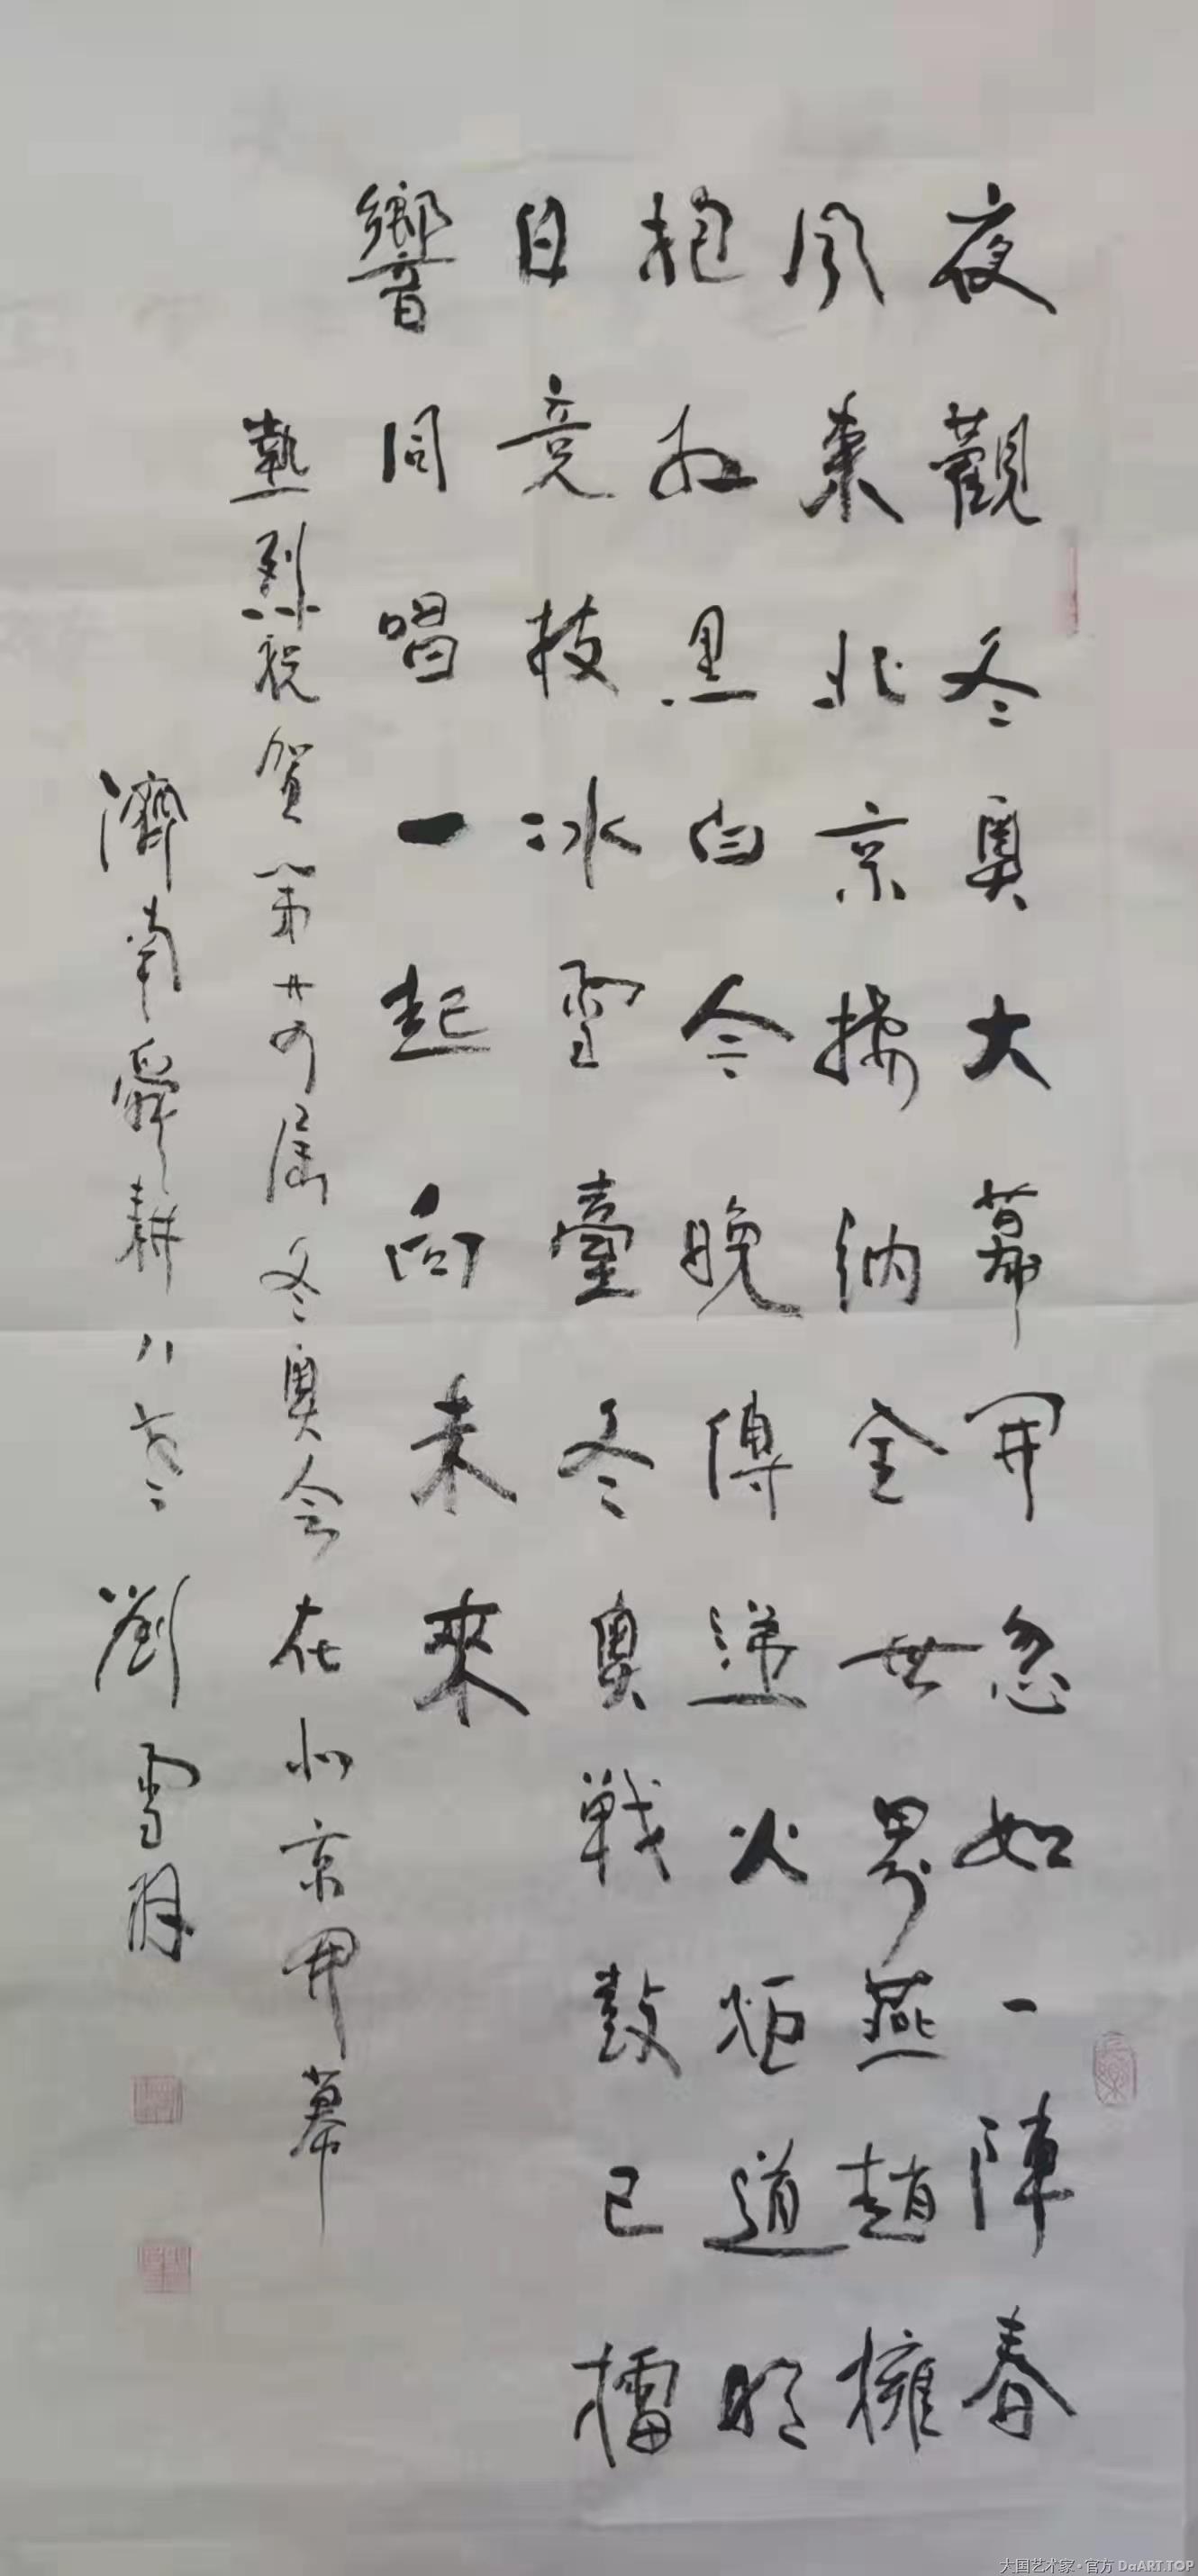 夜觀冬奧大幕開忽如一陣春
風來北京接納全世界燕趙擁
抱紅黑白今晚傳遞火炬道明
日竞技冰雪臺冬奧戰鼓已擂
響同唱一起向未來
熱烈祝贺第廿四届冬奧会在北京開幕
濟南舜耕八十老 劉雪
大国艺术家·官方 DaART.TOP